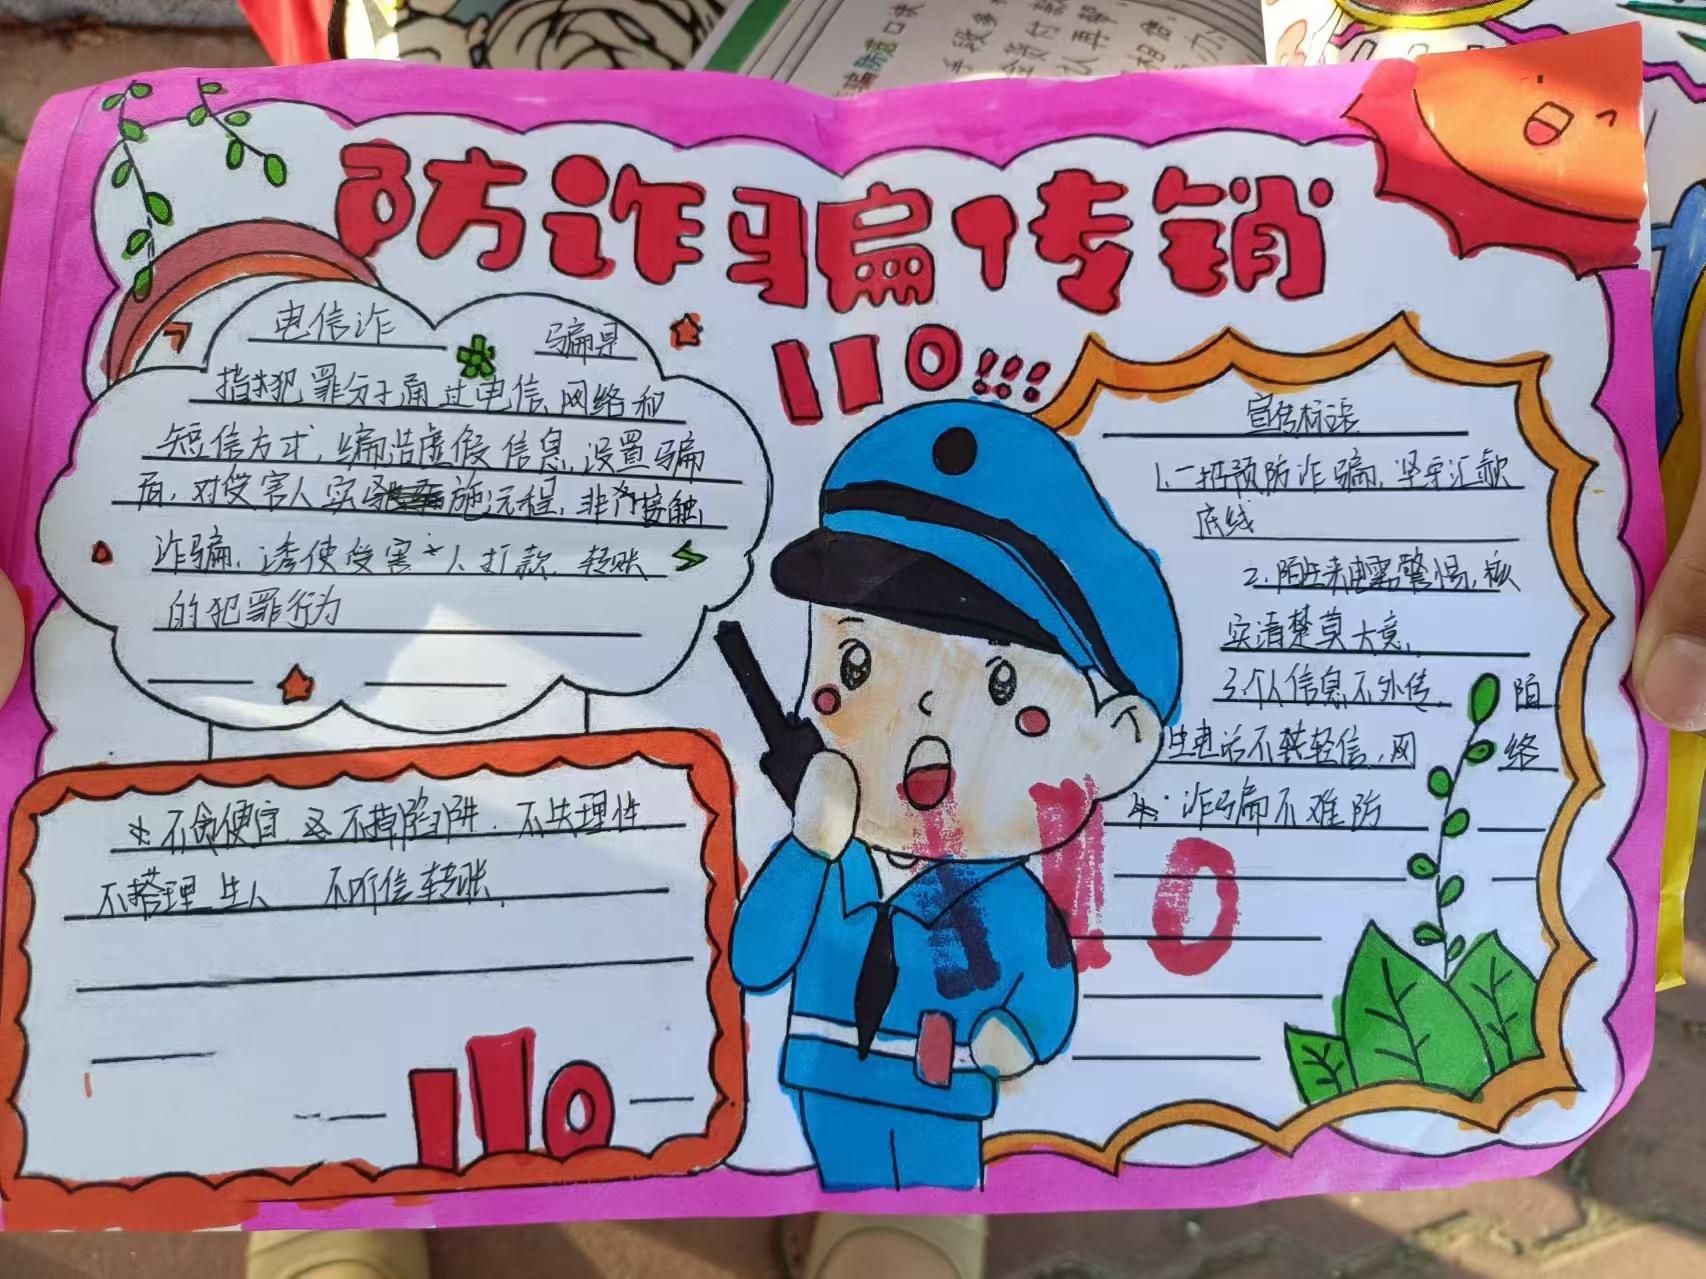 防诈骗传销
110!!!
电信诈 骗是
指犯罪分子通过电信网络和
短信方式,编造虚假信息,设置骗
局,对受害人实施远程,非接触
诈骗,诱使受害人打款 转账
的犯罪行为
不贪便宜 不掉陷阱 不失理性
不搭理生人 不听信转账
110
宣传标语
1.一把预防诈骗,坚牢汇款
底线
2.陌生来电需警惕,核
实清楚莫大意
3个人信息不外传 陌
生电话不轻信,网 络
诈骗不难防
110
手段多